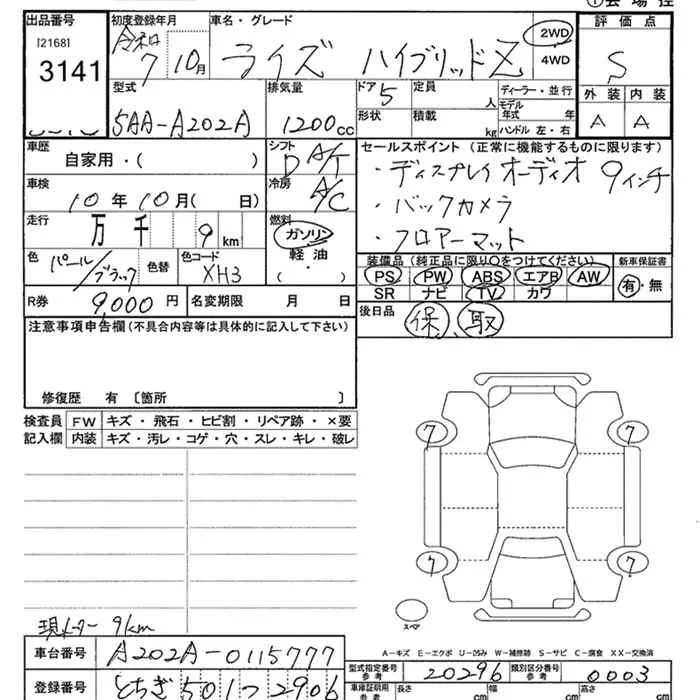 ①会場控
出品番号 初度登録年月 車名・グレード 評価点
[2168]
3141
令和 7 10月 ライズ ハイブリッドZ 2WD 4WD S
型式 排気量 ドア 5 定員 人 ディーラー・並行 外装 内装
5AA-A202A 1200cc 形状 積載 kg モデル年式 年 ハンドル 左・右 A A
車歴 自家用・( ) シフト D A/T セールスポイント (正常に機能するものに限ります)
・ディスプレイオーディオ 9インチ
車検 10年10月( 日) 冷房 A/C ・バックカメラ
走行 万 千 9 km 燃料 ガソリン 軽油・( ) ・フロアーマット
色 パール/ブラック 色替 色コード XH3 装備品 (純正品に限り○をつけてください) 新車保証書
PS PW ABS エアB AW 有・無
SR ナビ TV カワ
R券 9,000円 名変期限 月 日 後日品 保、取
注意事項申告欄(不具合内容等は具体的に記入して下さい)
修復歴 有 〔箇所 〕
検査員記入欄 FW キズ・飛石・ヒビ割・リペア跡・×要
内装 キズ・汚レ・コゲ・穴・スレ・キレ・破レ
7 7
7 7
スペア
現メーター 9km
A-キズ E-エクボ U-凹み W-補修跡 S-サビ C-腐食 XX-交換済
車台番号 A202A-0115777 型式指定番号 参考 20296 類別区分番号 参考 0003
登録番号 とちぎ 501つ2906 車庫証明用 参考 長さ cm 幅 cm 高さ cm